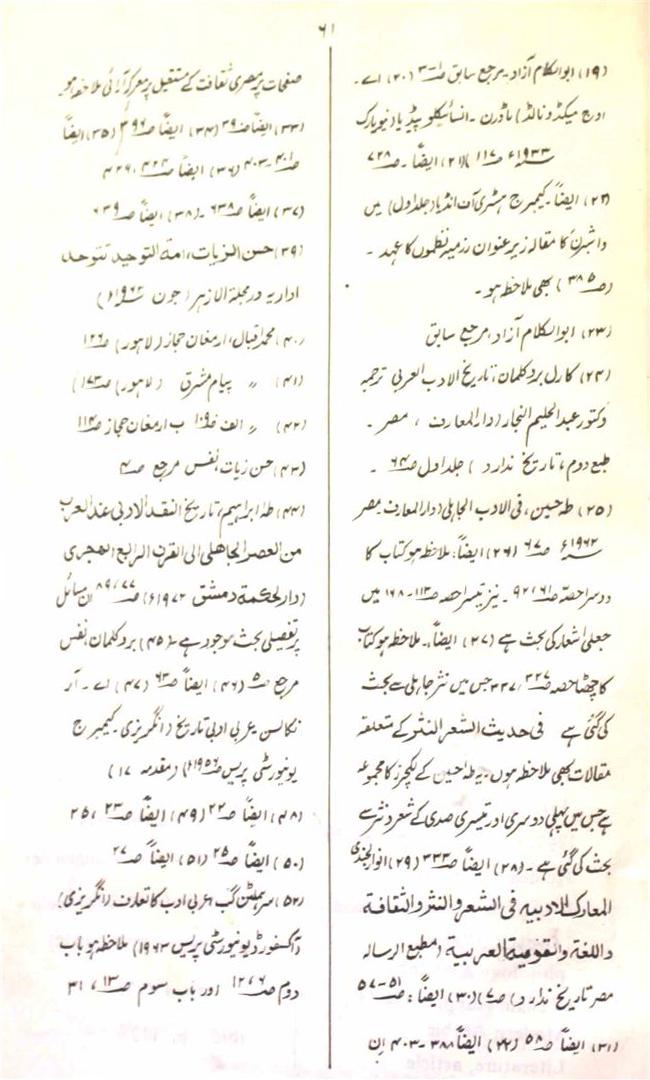 ۶۱
(۱۹) ابوالکلام آزاد۔ مرجع سابق ص۱-۳ (۲۰) اے۔
اوچ میکڈونالڈ) ماڈرن۔ انسائیکلوپیڈیا (نیویارک
۱۹۳۳ء ص۱۱۷ )(۲۱) ایضاً۔ ص۷۲۸
(۲۲) ایضاً۔ کیمبرج ہسٹری آف انڈیا (جلد اول) میں
واشبرن کا مقالہ زیر عنوان رزمیہ نظموں کا عہد۔
(ص۳۸۵) بھی ملاحظہ ہو۔
(۲۳) ابوالکلام آزاد، مرجع سابق
(۲۴) کارل بروکلمان، تاریخ الادب العربی ترجمہ
دکتور عبدالحلیم النجار (دارالمعارف، مصر۔
طبع دوم، تاریخ ندارد) جلد اول ص۶۴۔
(۲۵) طہ حسین، فی الادب الجاہلی (دارالمعارف مصر
۱۹۶۲ء ص۶۷ (۲۶) ایضاً: ملاحظہ ہو کتاب کا
دوسرا حصہ ص۶۱، ۹۲۔ نیز تیسرا حصہ ص۱۱۳-۱۶۸ میں
جعلی اشعار کی بحث ہے (۲۷) ایضاً۔ ملاحظہ ہو کتاب
کا چھٹا حصہ ص۳۲۷، ۳۳۷ جس میں نثر جاہلی سے بحث
کی گئی ہے فی حدیث الشعر النثر کے متعلقہ
مقالات بھی ملاحظہ ہوں۔ یہ طہ حسین کے لکچرز کا مجموعہ
ہے جس میں پہلی دوسری اور تیسری صدی کے شعر و نثر سے
بحث کی گئی ہے۔ (۲۸) ایضاً ص۳۳۳ (۲۹) انوار الجندی
المعارک الادبیہ فی الشعر و النثر والثقافۃ
و اللغۃ والقومیۃ العربیۃ (مطبع الرسالہ
مصر تاریخ ندارد) ص۷) (۳۰) ایضاً: ص۵۱-۵۷
(۳۱) ایضاً ص۵۸ (۳۲) ایضاً ۳۸۸-۴۰۳ ان
صفحات پر مصری ثقافت کے مستقبل پر معرکہ آرائی ملاحظہ ہو۔
(۳۳) ایضاً ص۳۹ (۳۴) ایضاً ص۳۹۶ (۳۵) ایضاً
ص۴۰۱-۴۰۳ (۳۶) ایضاً ص۴۲۴، ۴۲۶
(۳۷) ایضاً ص۶۳۸۔ (۳۸) ایضاً ص۶۳۹
(۳۹) حسن الزیات، امۃ التوحید تتوحد
اداریہ در مجلۃ الازہر (جون ۱۹۶۲ء)
(۴۰) محمد اقبال، ارمغان حجاز (لاہور) ص۱۲۶
(۴۱) " پیام مشرق (لاہور) ص۱۷۳)
(۴۲) " الف ص۱۰۹ ب ارمغان حجاز ص۱۱۴
(۴۳) حسن زیات، نفس مرجع ص۴
(۴۴) طہ ابراہیم، تاریخ النقد الادبی عند العرب
من العصر الجاھلی الی القرن الرابع الھجری
(دار الحکمۃ دمشق ۱۹۷۲ء) ص۷۷، ۸۹ ان مسائل
پر تفصیلی بحث موجود ہے۔ (۴۵) بروکلمان، نفس
مرجع ص۵ (۴۶) ایضاً ص۶۳ (۴۷) اے۔ آر
نکالسن۔ عربی ادبی تاریخ (انگریزی۔ کیمبرج
یونیورسٹی پریس ۱۹۵۶ء) (مقدمہ ۱۷)
(۴۸) ایضاً ص۲۲ (۴۹) ایضاً ص۲۳، ۲۵
(۵۰) ایضاً ص۲۵ (۵۱) ایضاً ص۲۷
(۵۲) سر ہملٹن گب، عربی ادب کا تعارف (انگریزی)
(آکسفورڈ یونیورسٹی پریس ۱۹۶۳) ملاحظہ ہو باب
دوم ص۶، ۱۲ اور باب سوم ص۱۳، ۳۱